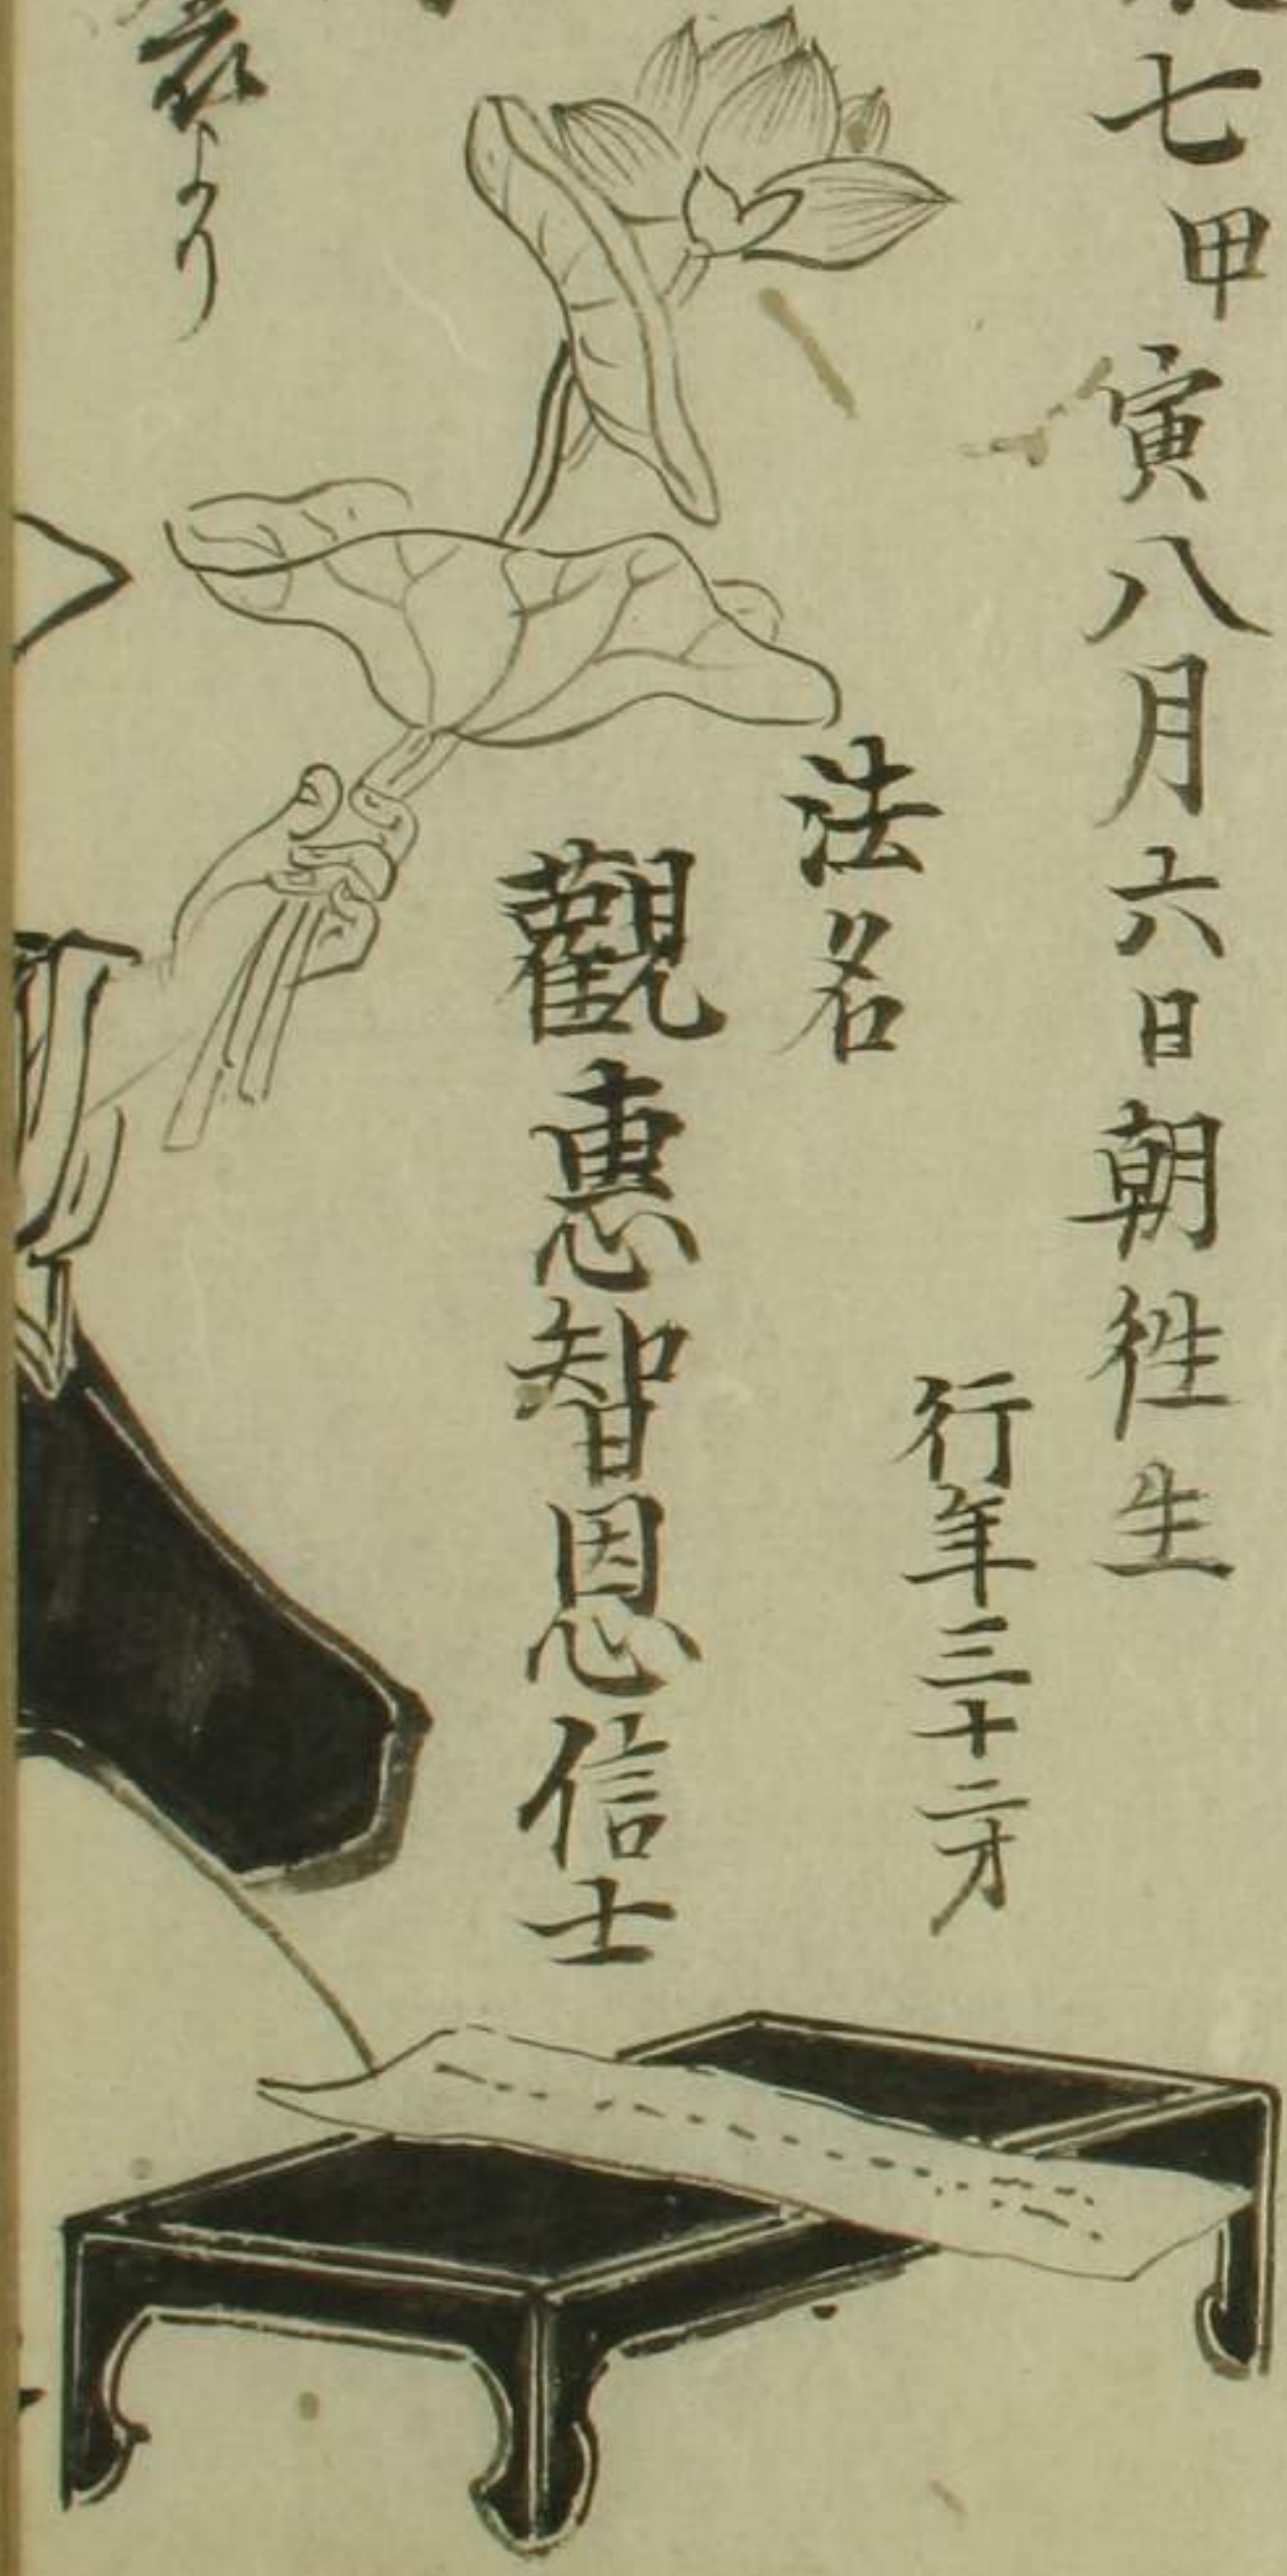 七甲寅八月六日朝徃生
行年三十二才
法名
觀恵智恩信士
より